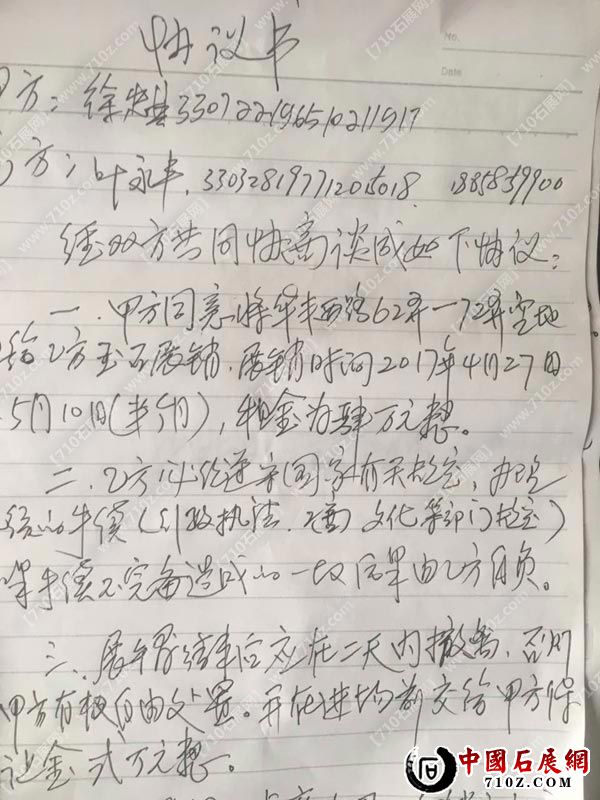 协议书
No.
Date
甲方：徐 330722196510211917
方：叶永丰，330328197712015018. 1385859900
经双方共同协商谈成如下协议：
一．甲方同意将华丰西路62弄—72弄空地
给乙方玉石展销．展销时间2017年4月27日
5月10日(半个月)，租金为肆万元整。
二．乙方必须遵守国家有关规定，办理
手续(行政执法．文化等部门规定)
手续不完备造成的一切后果由乙方自负。
三．展销会结束后应在二天内撤离，否则
甲方有权自由处置。并在进场前交给甲方保
证金弍万元整。
中國石展網
710z.Com
【710石展网】
www.710z.com